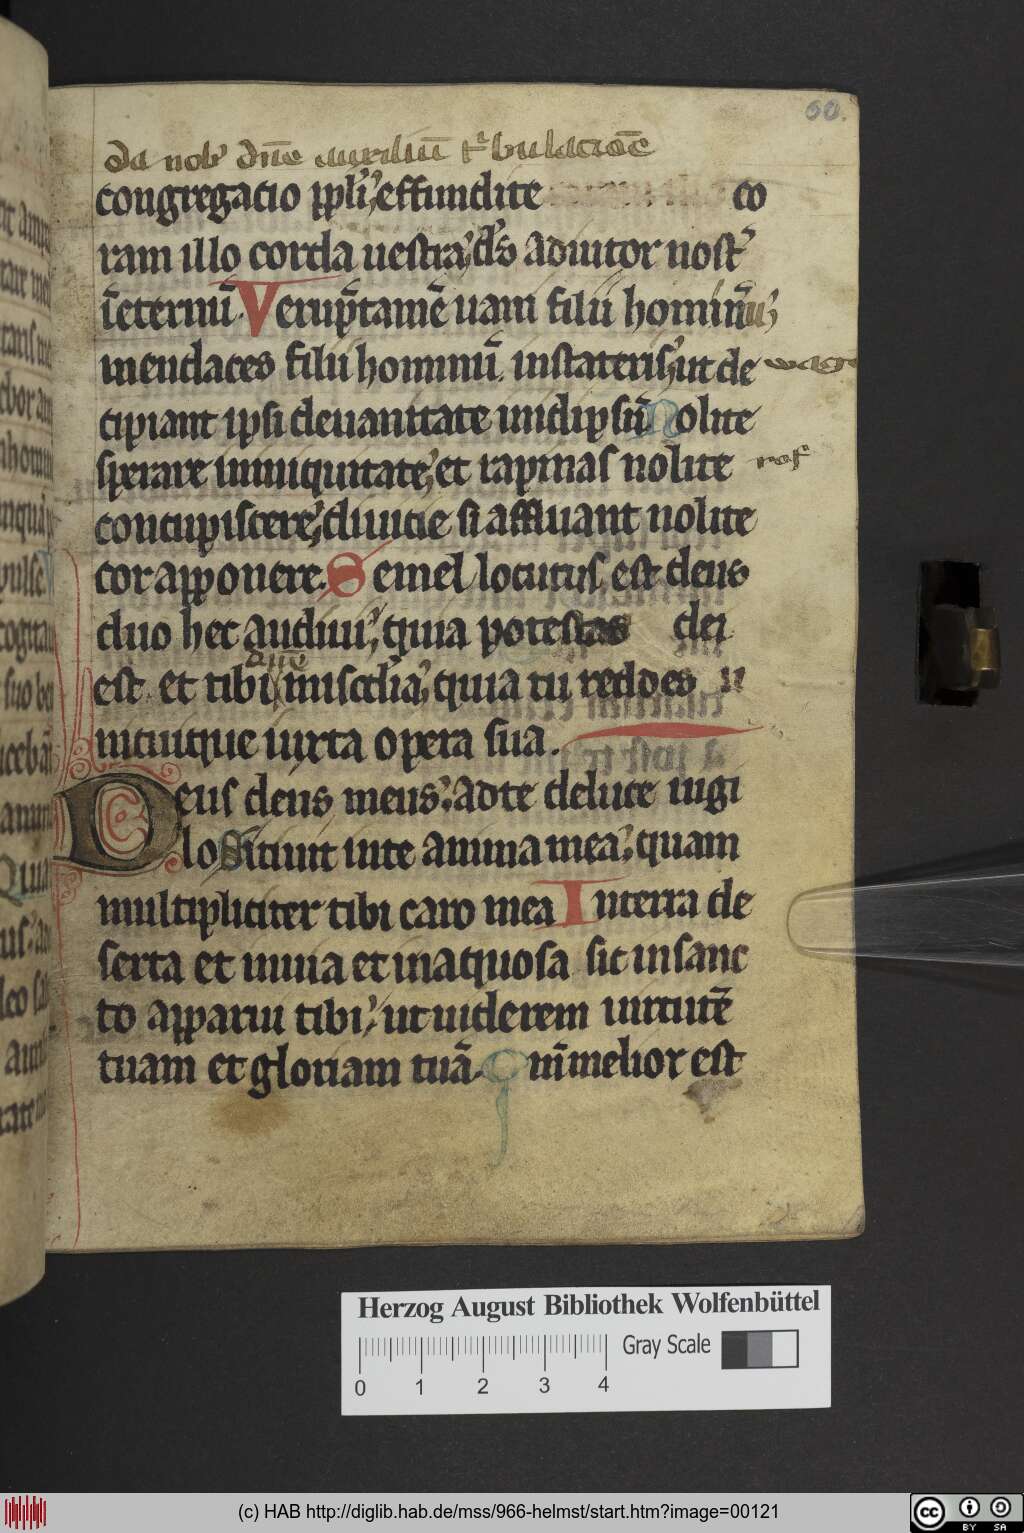 60.
da nob' dn̄e auxiliū t'bulacioē
congregacio ppl'i; effundite co
ram illo corda uestra; d's adiutor nost'
ī eternū. Verūptamē uani filii hominū;
mendaces filii hominū instateris; ut de
cipiant ipsi de uanitate in idipsū Nolite
sperare in iniquitate; et rapinas nolite
concupiscere; diuicie si affluant nolite
cor apponere. Semel locutus est deus
duo hec audiui; quia potestas dei
est et tibi dn̄e mis'cdia; quia tu reddes u
nicuique iuxta opera sua.
Deus deus meus; ad te de luce uigi
lo Sitiuit in te anima mea; quam
multipliciter tibi caro mea In terra de
serta et inuia et inaquosa sic in sanc
to apparui tibi; ut uiderem uirtutē
tuam et gloriam tuā. Qm̄ melior est
Herzog August Bibliothek Wolfenbüttel
0 1 2 3 4 Gray Scale
(c) HAB http://diglib.hab.de/mss/966-helmst/start.htm?image=00121
cc BY SA